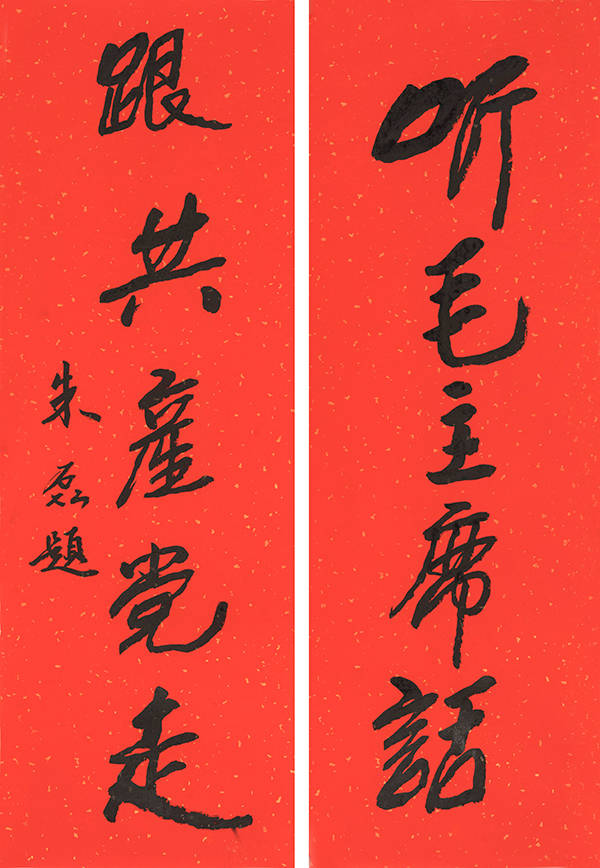 听毛主席話
跟共產党走
朱磊題